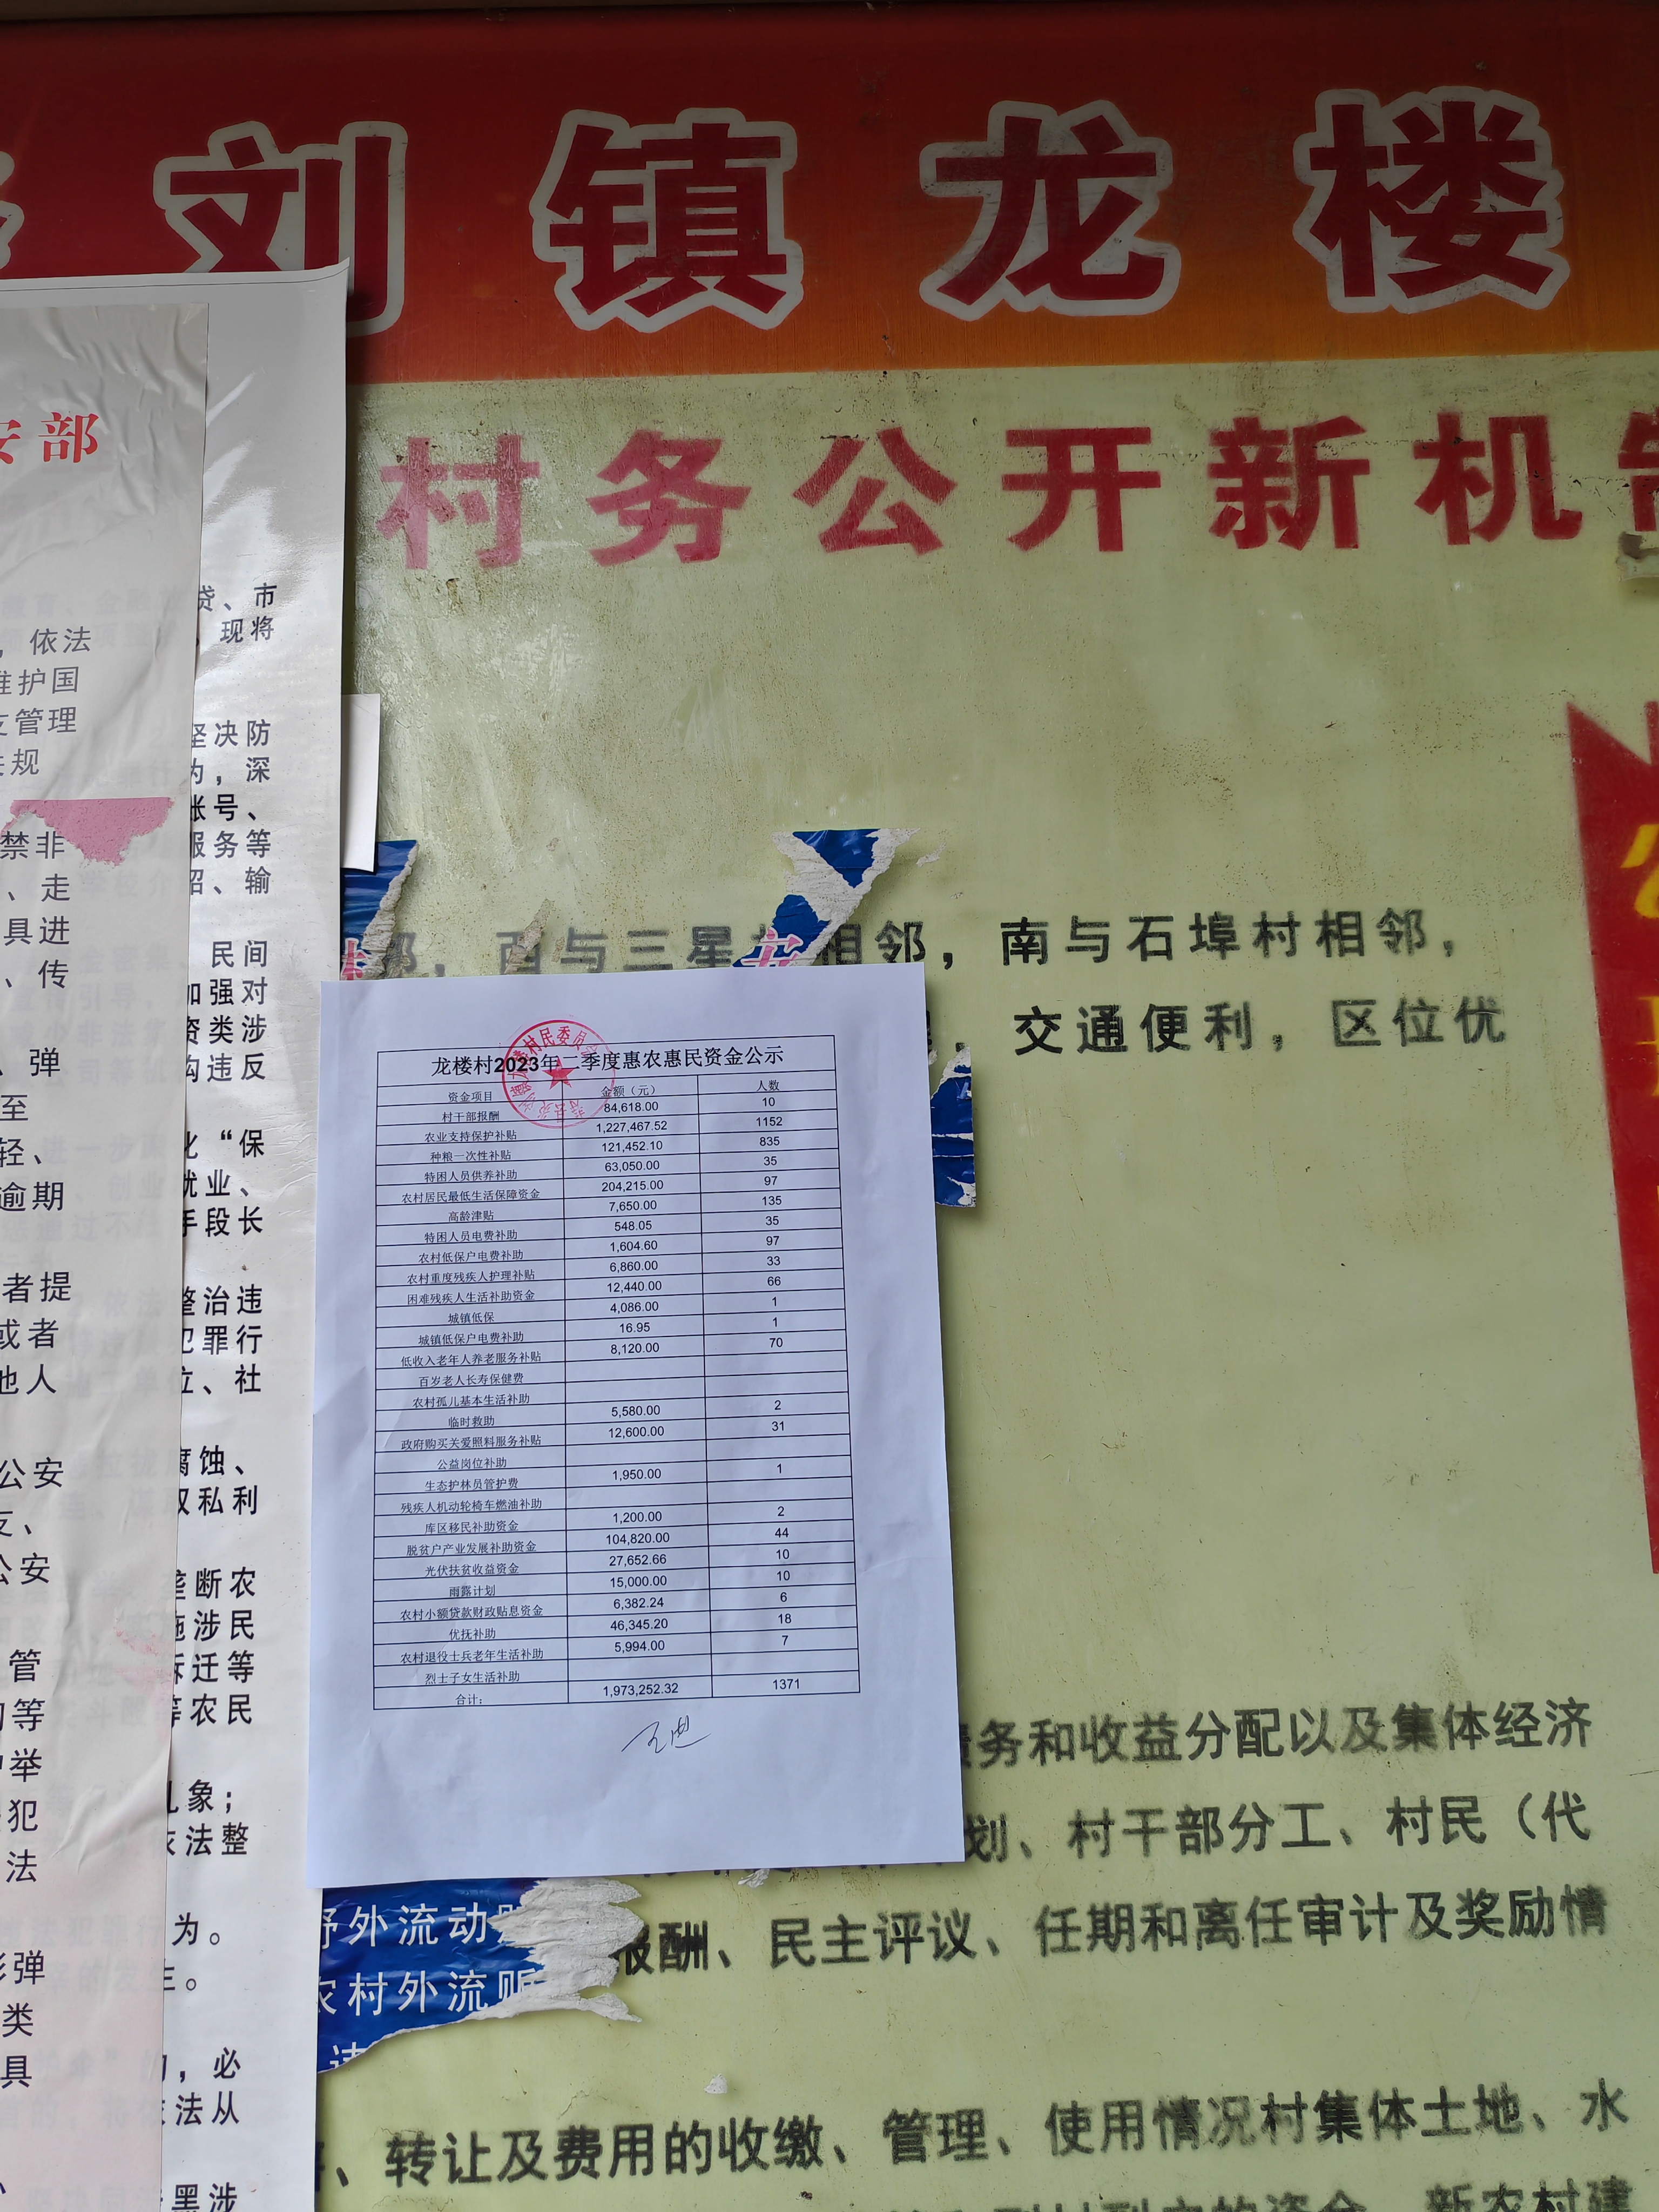 刘镇龙楼
村务公开新机
安部
贷、市
现将
，依法
维护国
支管理
法规
坚决防
为，深
账号、
服务等
绍、输
禁非
、走
具进
、传
民间
加强对
资类涉
沟违反
弹
至
轻、
逾期
化“保
优业、
手段长
者提
或者
他人
整治违
犯罪行
位、社
腐蚀、
权私利
公安
公安
垄断农
施涉民
拆迁等
等农民
管
的等
举
犯
法
乱象；
依法整
为。
弹
类
具
，必
法从
黑涉
，西与三星村相邻，南与石埠村相邻，
交通便利，区位优
龙楼村2023年二季度惠农惠民资金公示
资金项目 金额（元） 人数
村干部报酬 84,618.00 10
农业支持保护补贴 1,227,467.52 1152
种粮一次性补贴 121,452.10 835
特困人员供养补助 63,050.00 35
农村居民最低生活保障资金 204,215.00 97
高龄津贴 7,650.00 135
特困人员电费补助 548.05 35
农村低保户电费补助 1,604.60 97
农村重度残疾人护理补贴 6,860.00 33
困难残疾人生活补助资金 12,440.00 66
城镇低保 4,086.00 1
城镇低保户电费补助 16.95 1
低收入老年人养老服务补贴 8,120.00 70
百岁老人长寿保健费
农村孤儿基本生活补助
临时救助 5,580.00 2
政府购买关爱照料服务补贴 12,600.00 31
公益岗位补助
生态护林员管护费 1,950.00 1
残疾人机动轮椅车燃油补助
库区移民补助资金 1,200.00 2
脱贫户产业发展补助资金 104,820.00 44
光伏扶贫收益资金 27,652.66 10
雨露计划 15,000.00 10
农村小额贷款财政贴息资金 6,382.24 6
优抚补助 46,345.20 18
农村退役士兵老年生活补助 5,994.00 7
烈士子女生活补助
合计： 1,973,252.32 1371
债务和收益分配以及集体经济
划、村干部分工、村民（代
报酬、民主评议、任期和离任审计及奖励情
野外流动
农村外流贩
、转让及费用的收缴、管理、使用情况村集体土地、水
的资金、新农村建